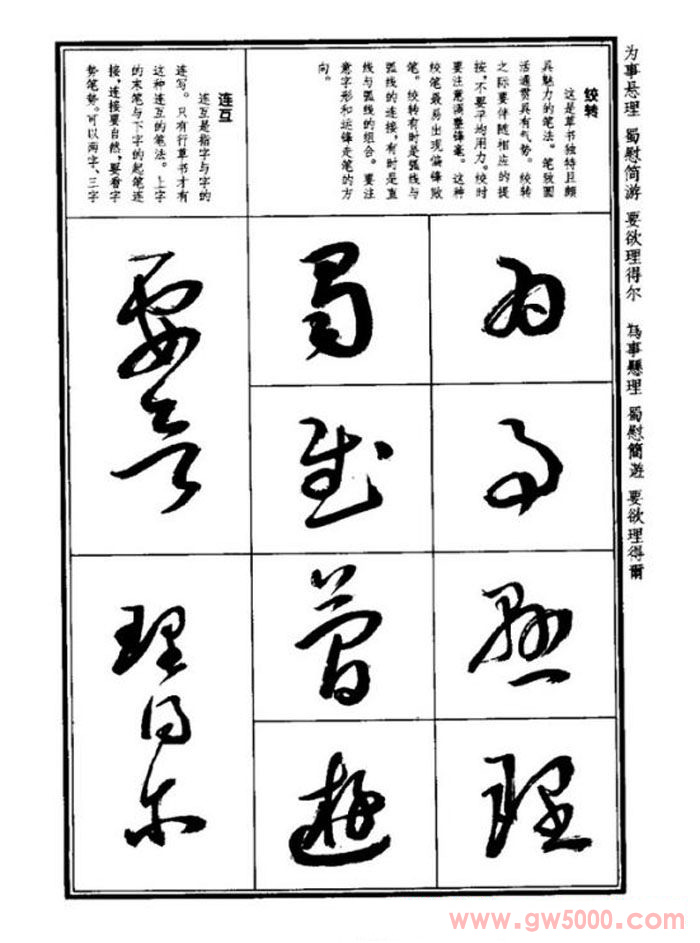 为事悬理 蜀慰简游 要欲理得尔 為事懸理 蜀慰簡遊 要欲理得爾
绞转
这是草书独特且颇
具魅力的笔法。笔致圆
活遒贯具有气势。绞转
之际要伴随相应的提
按，不要平均用力。绞时
要注意调整锋毫。这种
绞笔最易出现偏锋败
笔。绞转有时是弧线与
弧线的连接，有时是直
线与弧线的组合。要注
意字形和运锋走笔的方
向。
连互
连互是指字与字的
连写。只有行草书才有
这种连互的笔法。上字
的末笔与下字的起笔连
接，连接要自然，要看字
势笔势。可以两字、三字
为
事
悬
理
蜀
慰
简
遊
要欲
理得尔
www.gw5000.com